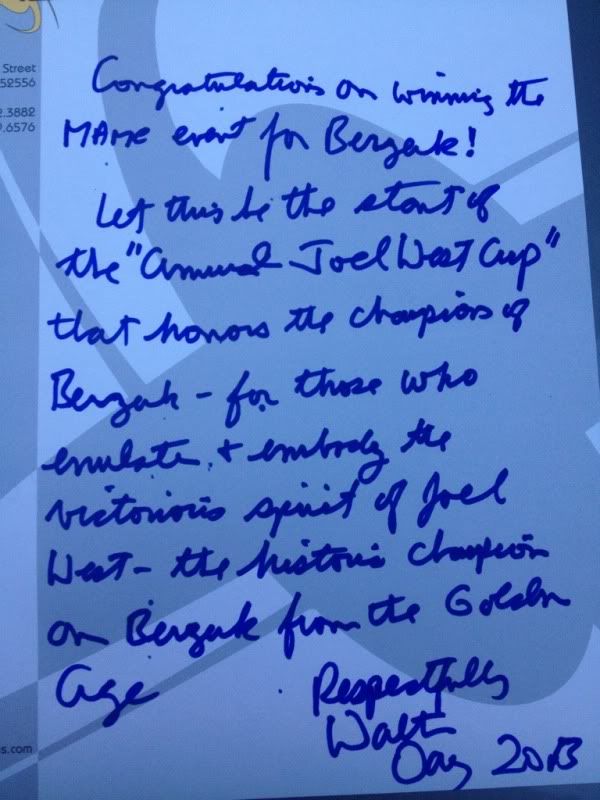 Street
52556
2.3882
9.6576
Congratulations on winning the
MAME event for Berzerk!
Let this be the start of
the "Annual Joel West Cup"
that honors the champions of
Berzerk - for those who
emulate & embody the
victorious spirit of Joel
West - the historic champion
on Berzerk from the Golden
Age
Respectfully
Walter
Day 2013
s.com